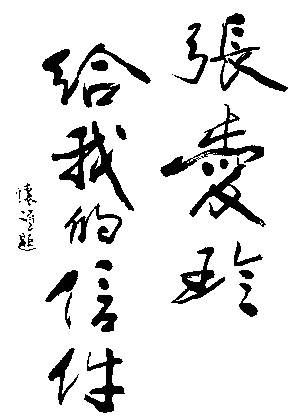 張愛玲
給我的信件
懷碩題